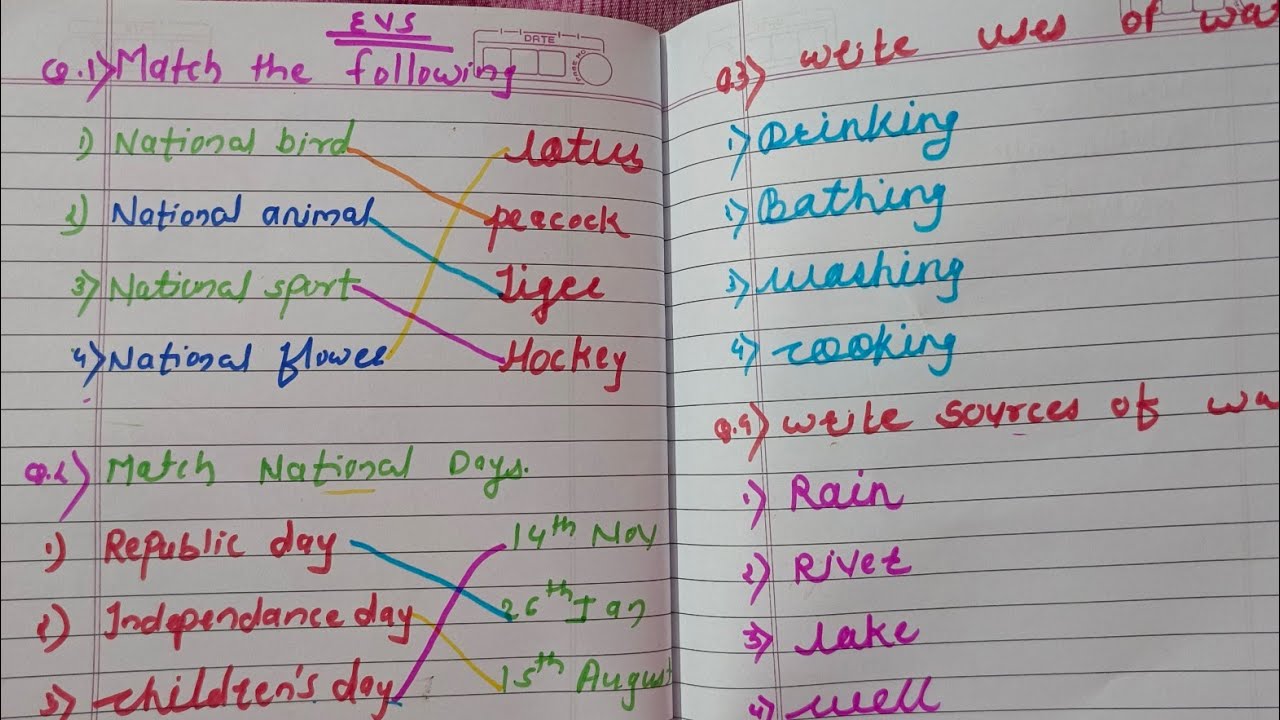 EVS
DATE
Q.1) Match the following
1) National bird Lotus
2) National animal peacock
3) National sport Tiger
4) National flower Hockey
Q.2) Match National Days.
1) Republic day 14th Nov
2) Independance day 26th Jan
3) children's day 15th August
Q3) write uses of wa
1) Drinking
1) Bathing
3) washing
4) cooking
Q.4) write sources of wa
1) Rain
2) River
3) lake
4) well